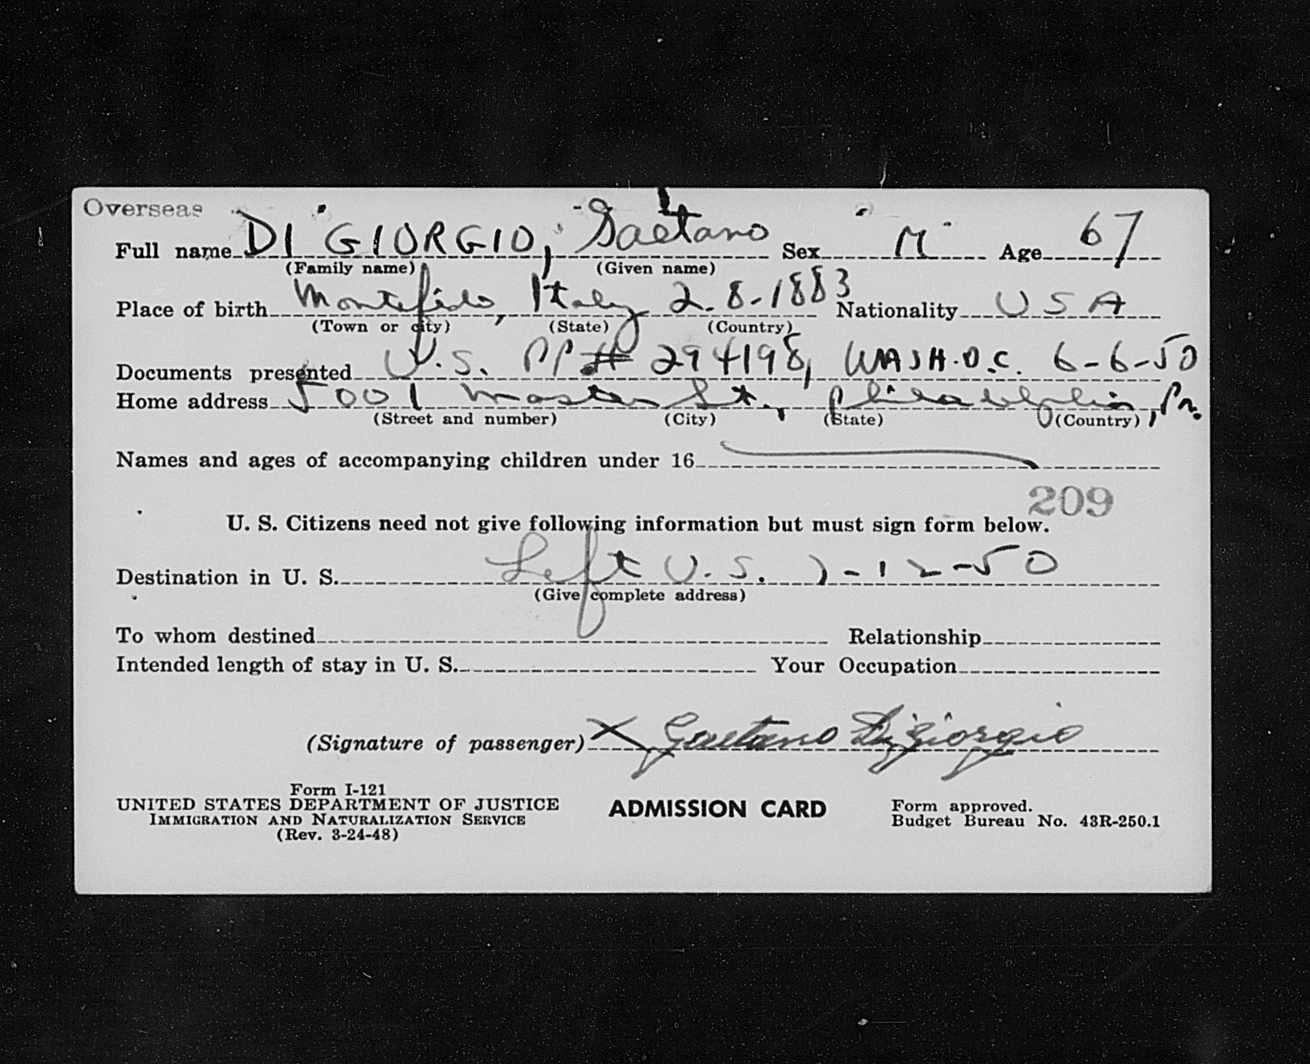 Overseas
Full name DI GIORGIO, Gaetano Sex M Age 67
(Family name) (Given name)
Place of birth Italy 2-8-1883 Nationality USA
(Town or city) (State) (Country)
Documents presented U.S. PP# 294198, WASH. D.C. 6-6-50
Home address 5001 Master St., Philadelphia, Pa.
(Street and number) (City) (State) (Country)
Names and ages of accompanying children under 16
209
U. S. Citizens need not give following information but must sign form below.
Destination in U. S. Left U.S. 7-12-50
(Give complete address)
To whom destined Relationship
Intended length of stay in U. S. Your Occupation
(Signature of passenger) X Gaetano DiGiorgio
Form I-121
UNITED STATES DEPARTMENT OF JUSTICE ADMISSION CARD Form approved.
IMMIGRATION AND NATURALIZATION SERVICE Budget Bureau No. 43R-250.1
(Rev. 3-24-48)